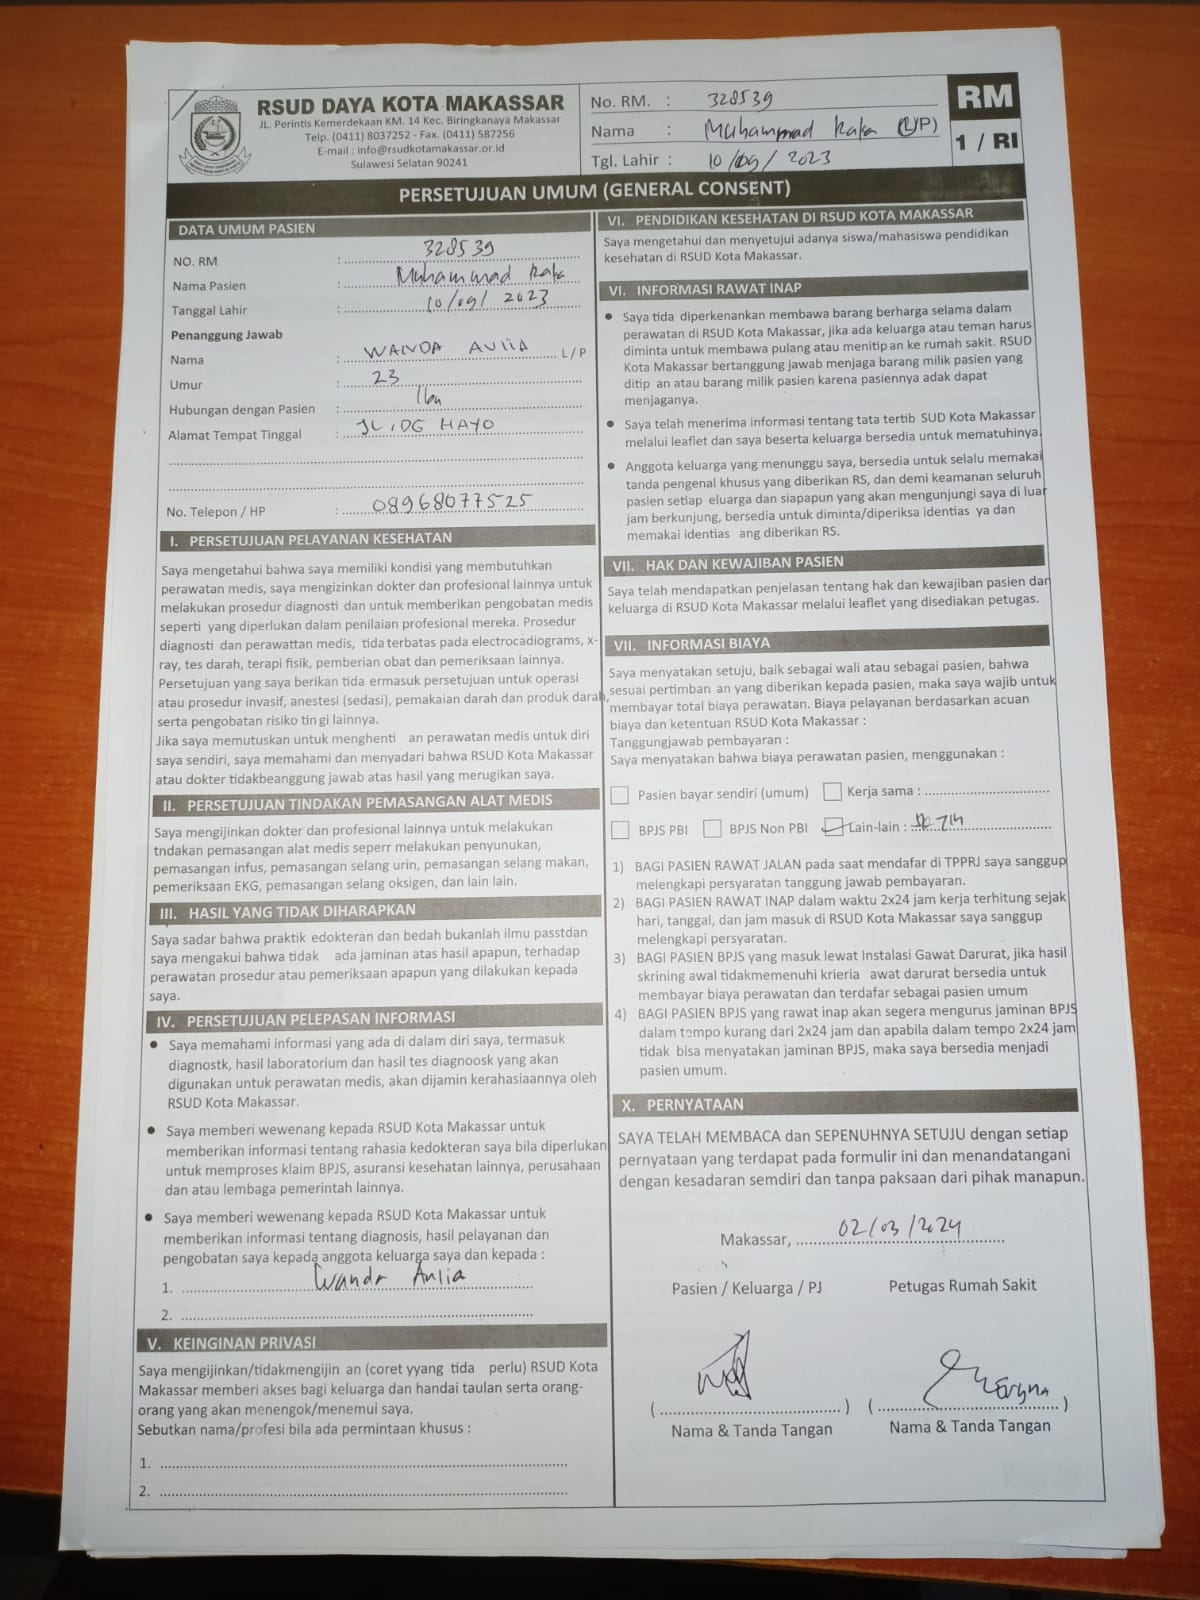 RSUD DAYA KOTA MAKASSAR
JL. Perintis Kemerdekaan KM. 14 Kec. Biringkanaya Makassar
Telp. (0411) 8037252 - Fax. (0411) 587256
E-mail : info@rsudkotamakassar.or.id
Sulawesi Selatan 90241
No. RM. : 328539
Nama : Muhammad Raka (L/P)
Tgl. Lahir : 10/09/2023
RM
1 / RI
PERSETUJUAN UMUM (GENERAL CONSENT)
DATA UMUM PASIEN
NO. RM : 328539
Nama Pasien : Muhammad Raka
Tanggal Lahir : 10/09/2023
Penanggung Jawab
Nama : WANDA AULIA L / P
Umur : 23
Hubungan dengan Pasien : Ibu
Alamat Tempat Tinggal : JL. DG HAYO
No. Telepon / HP : 08968077525
I. PERSETUJUAN PELAYANAN KESEHATAN
Saya mengetahui bahwa saya memiliki kondisi yang membutuhkan
perawatan medis, saya mengizinkan dokter dan profesional lainnya untuk
melakukan prosedur diagnosti dan untuk memberikan pengobatan medis
seperti yang diperlukan dalam penilaian profesional mereka. Prosedur
diagnosti dan perawattan medis, tida terbatas pada electrocadiograms, x-
ray, tes darah, terapi fisik, pemberian obat dan pemeriksaan lainnya.
Persetujuan yang saya berikan tida ermasuk persetujuan untuk operasi
atau prosedur invasif, anestesi (sedasi), pemakaian darah dan produk darah,
serta pengobatan risiko tin gi lainnya.
Jika saya memutuskan untuk menghenti an perawatan medis untuk diri
saya sendiri, saya memahami dan menyadari bahwa RSUD Kota Makassar
atau dokter tidakbeanggung jawab atas hasil yang merugikan saya.
II. PERSETUJUAN TINDAKAN PEMASANGAN ALAT MEDIS
Saya mengijinkan dokter dan profesional lainnya untuk melakukan
tndakan pemasangan alat medis seperr melakukan penyunukan,
pemasangan infus, pemasangan selang urin, pemasangan selang makan,
pemeriksaan EKG, pemasangan selang oksigen, dan lain lain.
III. HASIL YANG TIDAK DIHARAPKAN
Saya sadar bahwa praktik edokteran dan bedah bukanlah ilmu passtdan
saya mengakui bahwa tidak ada jaminan atas hasil apapun, terhadap
perawatan prosedur atau pemeriksaan apapun yang dilakukan kepada
saya.
IV. PERSETUJUAN PELEPASAN INFORMASI
• Saya memahami informasi yang ada di dalam diri saya, termasuk
diagnostk, hasil laboratorium dan hasil tes diagnoosk yang akan
digunakan untuk perawatan medis, akan dijamin kerahasiaannya oleh
RSUD Kota Makassar.
• Saya memberi wewenang kepada RSUD Kota Makassar untuk
memberikan informasi tentang rahasia kedokteran saya bila diperlukan
untuk memproses klaim BPJS, asuransi kesehatan lainnya, perusahaan
dan atau lembaga pemerintah lainnya.
• Saya memberi wewenang kepada RSUD Kota Makassar untuk
memberikan informasi tentang diagnosis, hasil pelayanan dan
pengobatan saya kepada anggota keluarga saya dan kepada :
1. Wanda Aulia
2.
V. KEINGINAN PRIVASI
Saya mengijinkan/tidakmengijin an (coret yyang tida perlu) RSUD Kota
Makassar memberi akses bagi keluarga dan handai taulan serta orang-
orang yang akan menengok/menemui saya.
Sebutkan nama/profesi bila ada permintaan khusus :
1.
2.
VI. PENDIDIKAN KESEHATAN DI RSUD KOTA MAKASSAR
Saya mengetahui dan menyetujui adanya siswa/mahasiswa pendidikan
kesehatan di RSUD Kota Makassar.
VI. INFORMASI RAWAT INAP
• Saya tida diperkenankan membawa barang berharga selama dalam
perawatan di RSUD Kota Makassar, jika ada keluarga atau teman harus
diminta untuk membawa pulang atau menitip an ke rumah sakit. RSUD
Kota Makassar bertanggung jawab menjaga barang milik pasien yang
ditip an atau barang milik pasien karena pasiennya adak dapat
menjaganya.
• Saya telah menerima informasi tentang tata tertib SUD Kota Makassar
melalui leaflet dan saya beserta keluarga bersedia untuk mematuhinya.
• Anggota keluarga yang menunggu saya, bersedia untuk selalu memakai
tanda pengenal khusus yang diberikan RS, dan demi keamanan seluruh
pasien setiap eluarga dan siapapun yang akan mengunjungi saya di luar
jam berkunjung, bersedia untuk diminta/diperiksa identias ya dan
memakai identias ang diberikan RS.
VII. HAK DAN KEWAJIBAN PASIEN
Saya telah mendapatkan penjelasan tentang hak dan kewajiban pasien dar
keluarga di RSUD Kota Makassar melalui leaflet yang disediakan petugas.
VII. INFORMASI BIAYA
Saya menyatakan setuju, baik sebagai wali atau sebagai pasien, bahwa
sesuai pertimban an yang diberikan kepada pasien, maka saya wajib untuk
membayar total biaya perawatan. Biaya pelayanan berdasarkan acuan
biaya dan ketentuan RSUD Kota Makassar :
Tanggungjawab pembayaran :
Saya menyatakan bahwa biaya perawatan pasien, menggunakan :
Pasien bayar sendiri (umum) Kerja sama :
BPJS PBI BPJS Non PBI Lain-lain :
1) BAGI PASIEN RAWAT JALAN pada saat mendafar di TPPRJ saya sanggup
melengkapi persyaratan tanggung jawab pembayaran.
2) BAGI PASIEN RAWAT INAP dalam waktu 2x24 jam kerja terhitung sejak
hari, tanggal, dan jam masuk di RSUD Kota Makassar saya sanggup
melengkapi persyaratan.
3) BAGI PASIEN BPJS yang masuk lewat Instalasi Gawat Darurat, jika hasil
skrining awal tidakmemenuhi krieria awat darurat bersedia untuk
membayar biaya perawatan dan terdafar sebagai pasien umum
4) BAGI PASIEN BPJS yang rawat inap akan segera mengurus jaminan BPJS
dalam tempo kurang dari 2x24 jam dan apabila dalam tempo 2x24 jam
tidak bisa menyatakan jaminan BPJS, maka saya bersedia menjadi
pasien umum.
X. PERNYATAAN
SAYA TELAH MEMBACA dan SEPENUHNYA SETUJU dengan setiap
pernyataan yang terdapat pada formulir ini dan menandatangani
dengan kesadaran semdiri dan tanpa paksaan dari pihak manapun.
Makassar, 02/03/2024
Pasien / Keluarga / PJ Petugas Rumah Sakit
Nama & Tanda Tangan Nama & Tanda Tangan